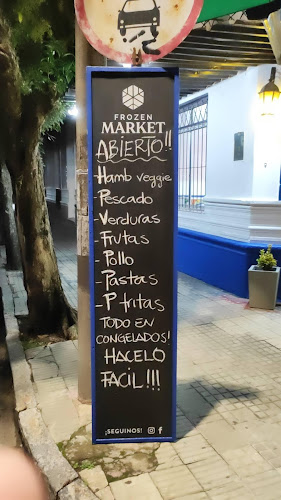 FROZEN
MARKET
ABIERTO!!
-Hamb veggie
-Pescado
-Verduras
-Frutas
-Pollo
-Pastas
-P fritas
TODO EN
CONGELADOS!
HACELO
FACIL!!!
¡SEGUINOS!